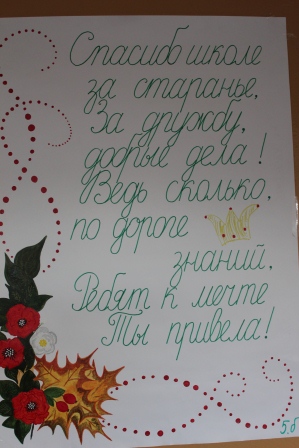 Спасибо школе
за старанье,
За дружбу,
добрые дела!
Ведь сколько,
по дороге
знаний,
Ребят к мечте
Ты привела!
5.б